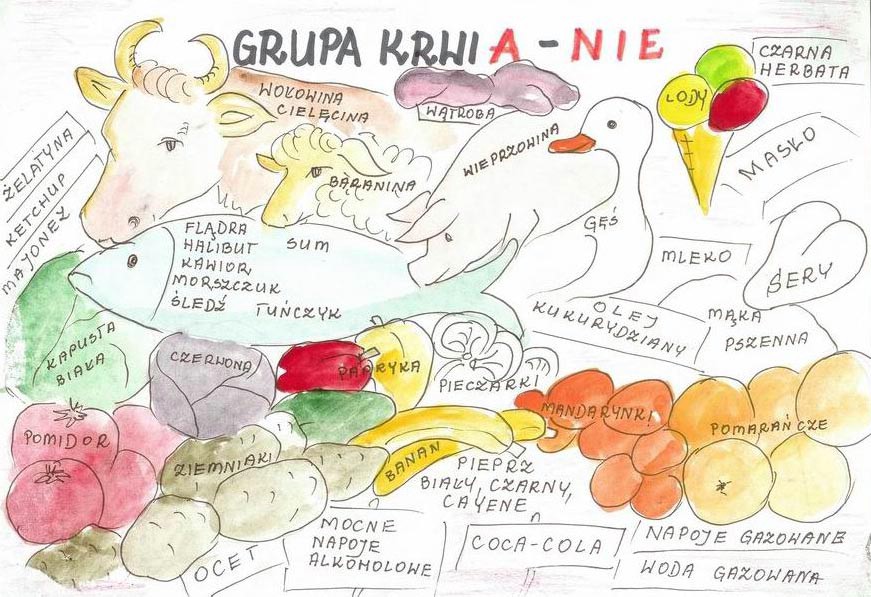 GRUPA KRWI A - NIE
CZARNA
HERBATA
LODY
WOŁOWINA
CIELĘCINA
WĄTROBA
WIEPRZOWINA
MASŁO
ŻELATYNA
KETCHUP
MAJONEZ
BARANINA
GĘŚ
FLĄDRA
HALIBUT
SUM
KAWIOR
MORSZCZUK
ŚLEDŹ
TUŃCZYK
MLEKO
SERY
OLEJ
KUKURYDZIANY
MĄKA
PSZENNA
KAPUSTA
BIAŁA
CZERWONA
PAPRYKA
PIECZARKI
MANDARYNKI
POMARAŃCZE
POMIDOR
ZIEMNIAKI
BANAN
PIEPRZ
BIAŁY, CZARNY,
CAYENE
OCET
MOCNE
NAPOJE
ALKOHOLOWE
COCA-COLA
NAPOJE GAZOWANE
WODA GAZOWANA